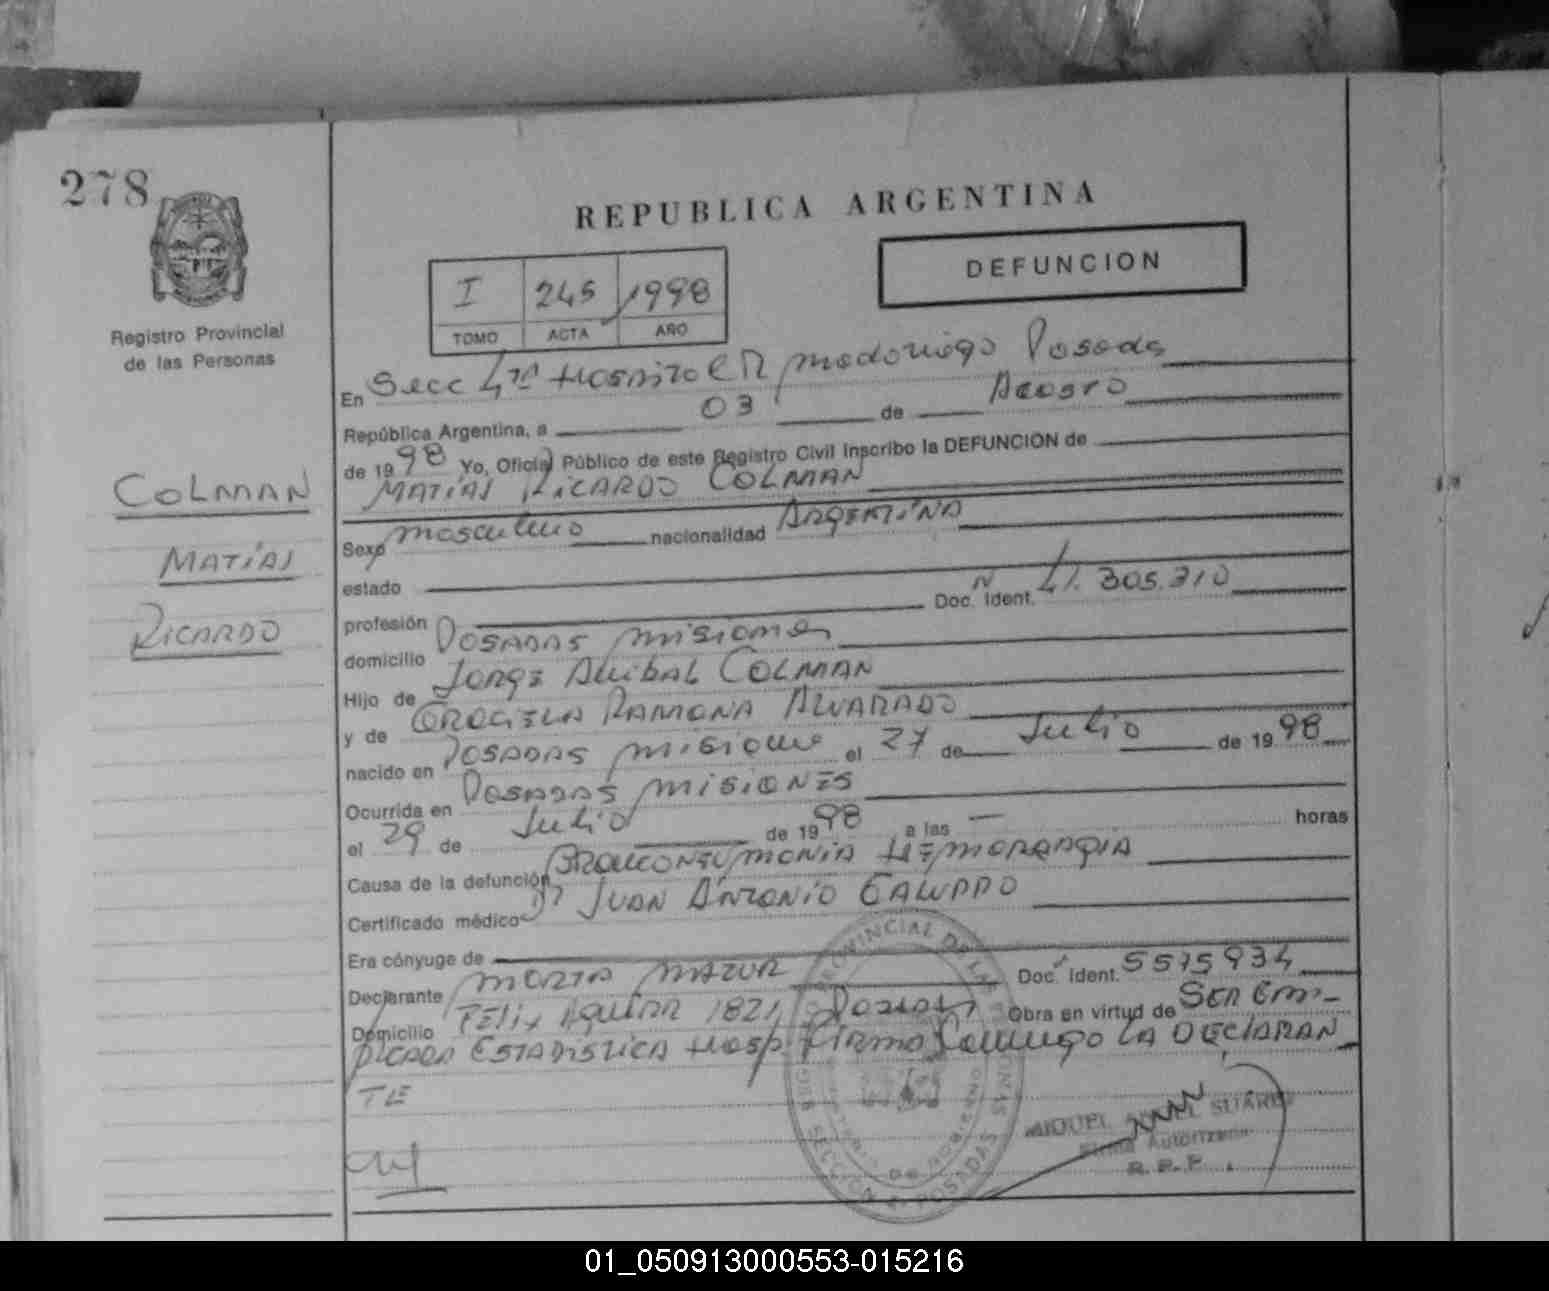 278
REPUBLICA ARGENTINA
DEFUNCION
I 245 1998
TOMO ACTA AÑO
Registro Provincial
de las Personas
COLMAN
MATÍAS
RICARDO
En Secc 4ta Hospital R madariaga Posadas
República Argentina, a 03 de Agosto
de 1998 Yo, Oficial Público de este Registro Civil Inscribo la DEFUNCION de
MATÍAS RICARDO COLMAN
Sexo masculino nacionalidad ARGENTINA
estado
profesión Doc. Ident. N 41.305.310
domicilio POSADAS misiones
Hijo de Jorge Anibal COLMAN
y de GRACIELA RAMONA ALVARADO
nacido en POSADAS misiones el 27 de Julio de 1998
Ocurrida en POSADAS MISIONES
el 29 de Julio de 1998 a las — horas
Causa de la defunción BRONCONEUMONIA HEMORRAGIA
Certificado médico Dr JUAN ANTONIO GALUPPO
Era cónyuge de
Declarante MARTA MAZUR Doc. Ident. 5575934
Domicilio FELIX AGUIRR 1821 Posadas Obra en virtud de SER EM-
PLEADA ESTADISTICA Hosp. FIRMA Conmigo LA DECLARAN
TE
REGISTRO PROVINCIAL DE LAS PERSONAS
MINISTERIO DE GOBIERNO
SECCION 4ª POSADAS
MIGUEL SUAREZ
Firma Autorizada
R. P. P.
01_050913000553-015216